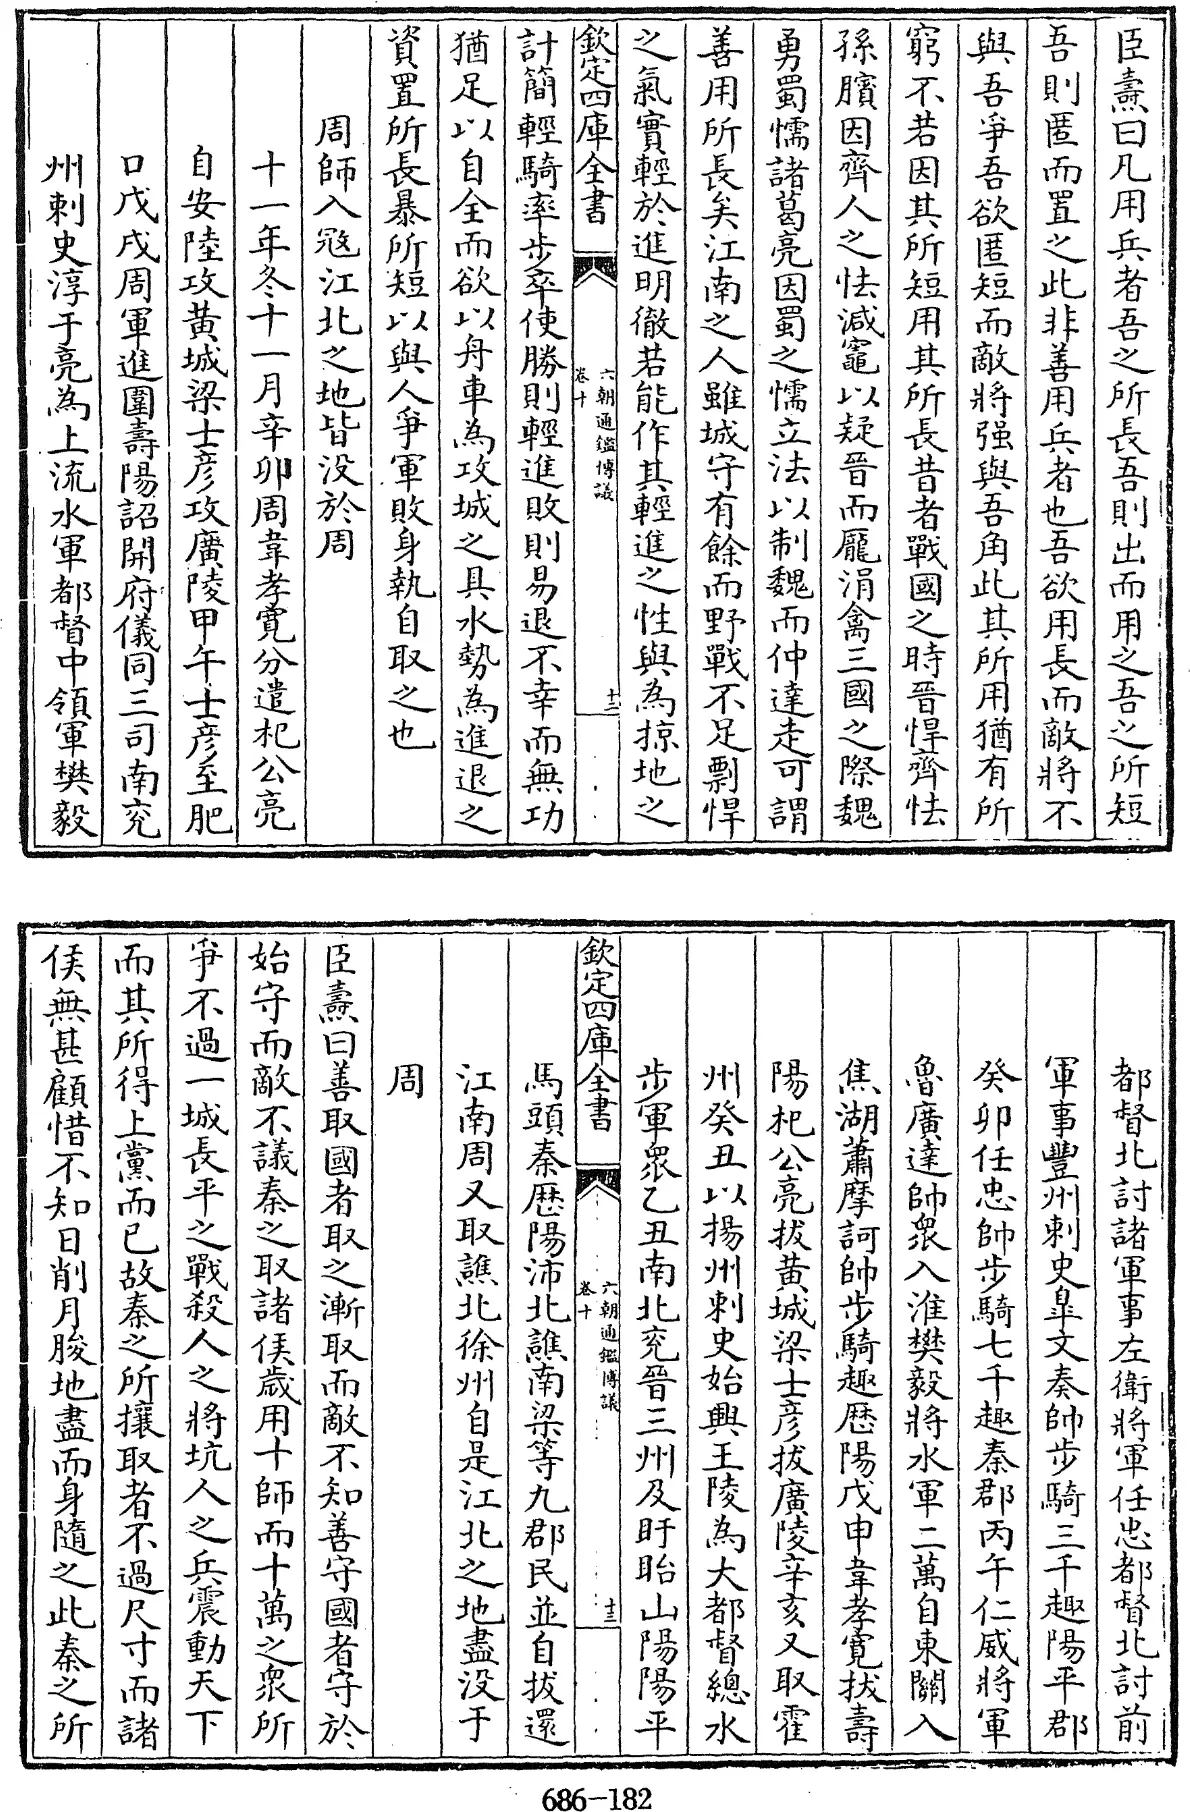 臣燾曰凡用兵者吾之所長吾則出而用之吾之所短
吾則匿而置之此非善用兵者也吾欲用長而敵將不
與吾爭吾欲匿短而敵將强與吾角此其所用猶有所
窮不若因其所短用其所長昔者戰國之時晉悍齊怯
孫臏因齊人之怯減竈以疑晉而龎涓禽三國之際魏
勇蜀懦諸葛亮因蜀之懦立法以制魏而仲達走可謂
善用所長矣江南之人雖城守有餘而野戰不足剽悍
之氣實輕於進明徹若能作其輕進之性與為掠地之
欽定四庫全書
六朝通鑑博議
卷十
十二
計簡輕騎率步卒使勝則輕進敗則易退不幸而無功
猶足以自全而欲以舟車為攻城之具水勢為進退之
資置所長暴所短以與人爭軍敗身執自取之也
周師入宼江北之地皆没於周
十一年冬十一月辛卯周韋孝寛分遣杞公亮
自安陸攻黄城梁士彦攻廣陵甲午士彦至肥
口戊戌周軍進圍壽陽詔開府儀同三司南兖
州刺史淳于亮為上流水軍都督中領軍樊毅
都督北討諸軍事左衛將軍任忠都督北討前
軍事豐州刺史臯文奏帥步騎三千趣陽平郡
癸卯任忠帥步騎七千趣秦郡丙午仁威將軍
魯廣達帥衆入淮樊毅將水軍二萬自東關入
焦湖蕭摩訶帥步騎趣歴陽戊申韋孝寛拔壽
陽杞公亮拔黄城梁士彦拔廣陵辛亥又取霍
州癸丑以揚州刺史始興王陵為大都督總水
步軍衆乙丑南北兖晉三州及盱眙山陽陽平
欽定四庫全書
六朝通鑑博議
卷十
十三
馬頭秦歴陽沛北譙南梁等九郡民並自拔還
江南周又取譙北徐州自是江北之地盡没于
周
臣燾曰善取國者取之漸取而敵不知善守國者守於
始守而敵不議秦之取諸侯歲用十師而十萬之衆所
爭不過一城長平之戰殺人之將坑人之兵震動天下
而其所得上黨而已故秦之所攘取者不過尺寸而諸
侯無甚顧惜不知日削月朘地盡而身隨之此秦之所
686-182